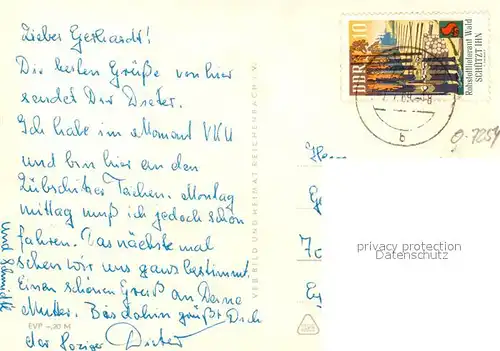 Lieber Gerhardt!
Die besten Grüße von hier
sendet Dir Dieter.
Ich habe im Moment VKU
und bin hier an den
Lübschützer Teichen. Montag
mittag muß ich jedoch schon
fahren. Das nächste mal
sehen wir uns ganz bestimmt.
Einen schönen Gruß an Deine
Mutter. Bis dahin grüßt Dich
der Dieter
und
EVP -,20 M
VEB BILD UND HEIMAT REICHENBACH i. V.
DDR 10
Rohstofflieferant Wald
SCHÜTZT IHN
b
g-7254
Herrn
Ge
70
privacy protection
www.oldthing.de